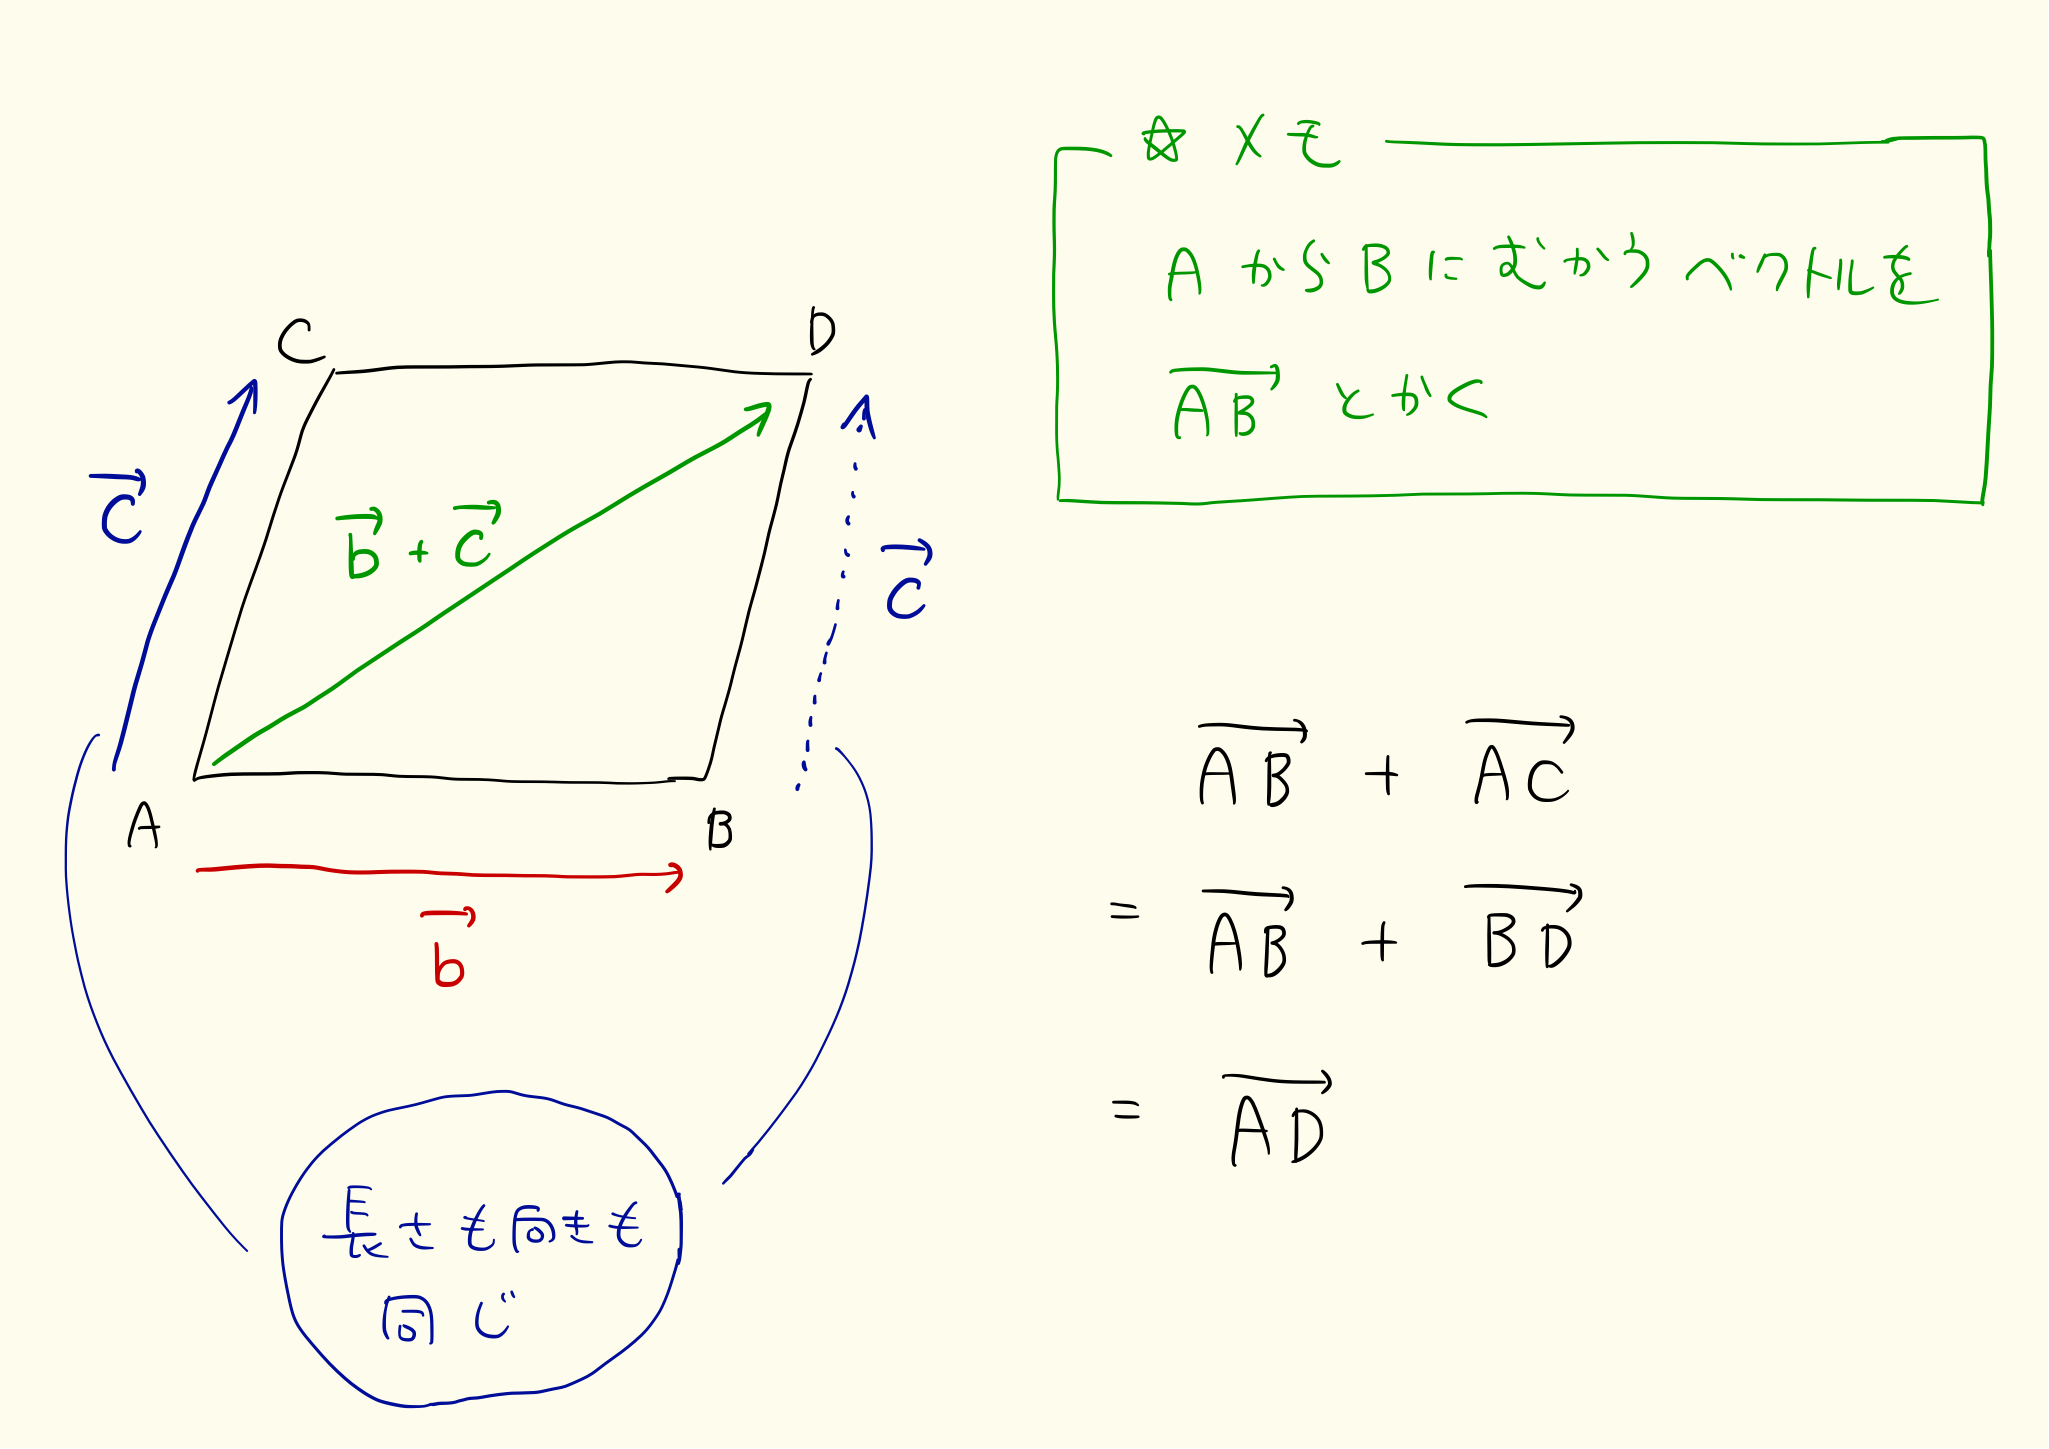 ☆ メモ
AからBにむかうベクトルを
$\overrightarrow{AB}$ とかく
C
D
$\vec{c}$
$\vec{b}+\vec{c}$
$\vec{c}$
A
B
$\vec{b}$
長さも向きも
同じ
$\overrightarrow{AB}+\overrightarrow{AC}$
$=\overrightarrow{AB}+\overrightarrow{BD}$
$=\overrightarrow{AD}$